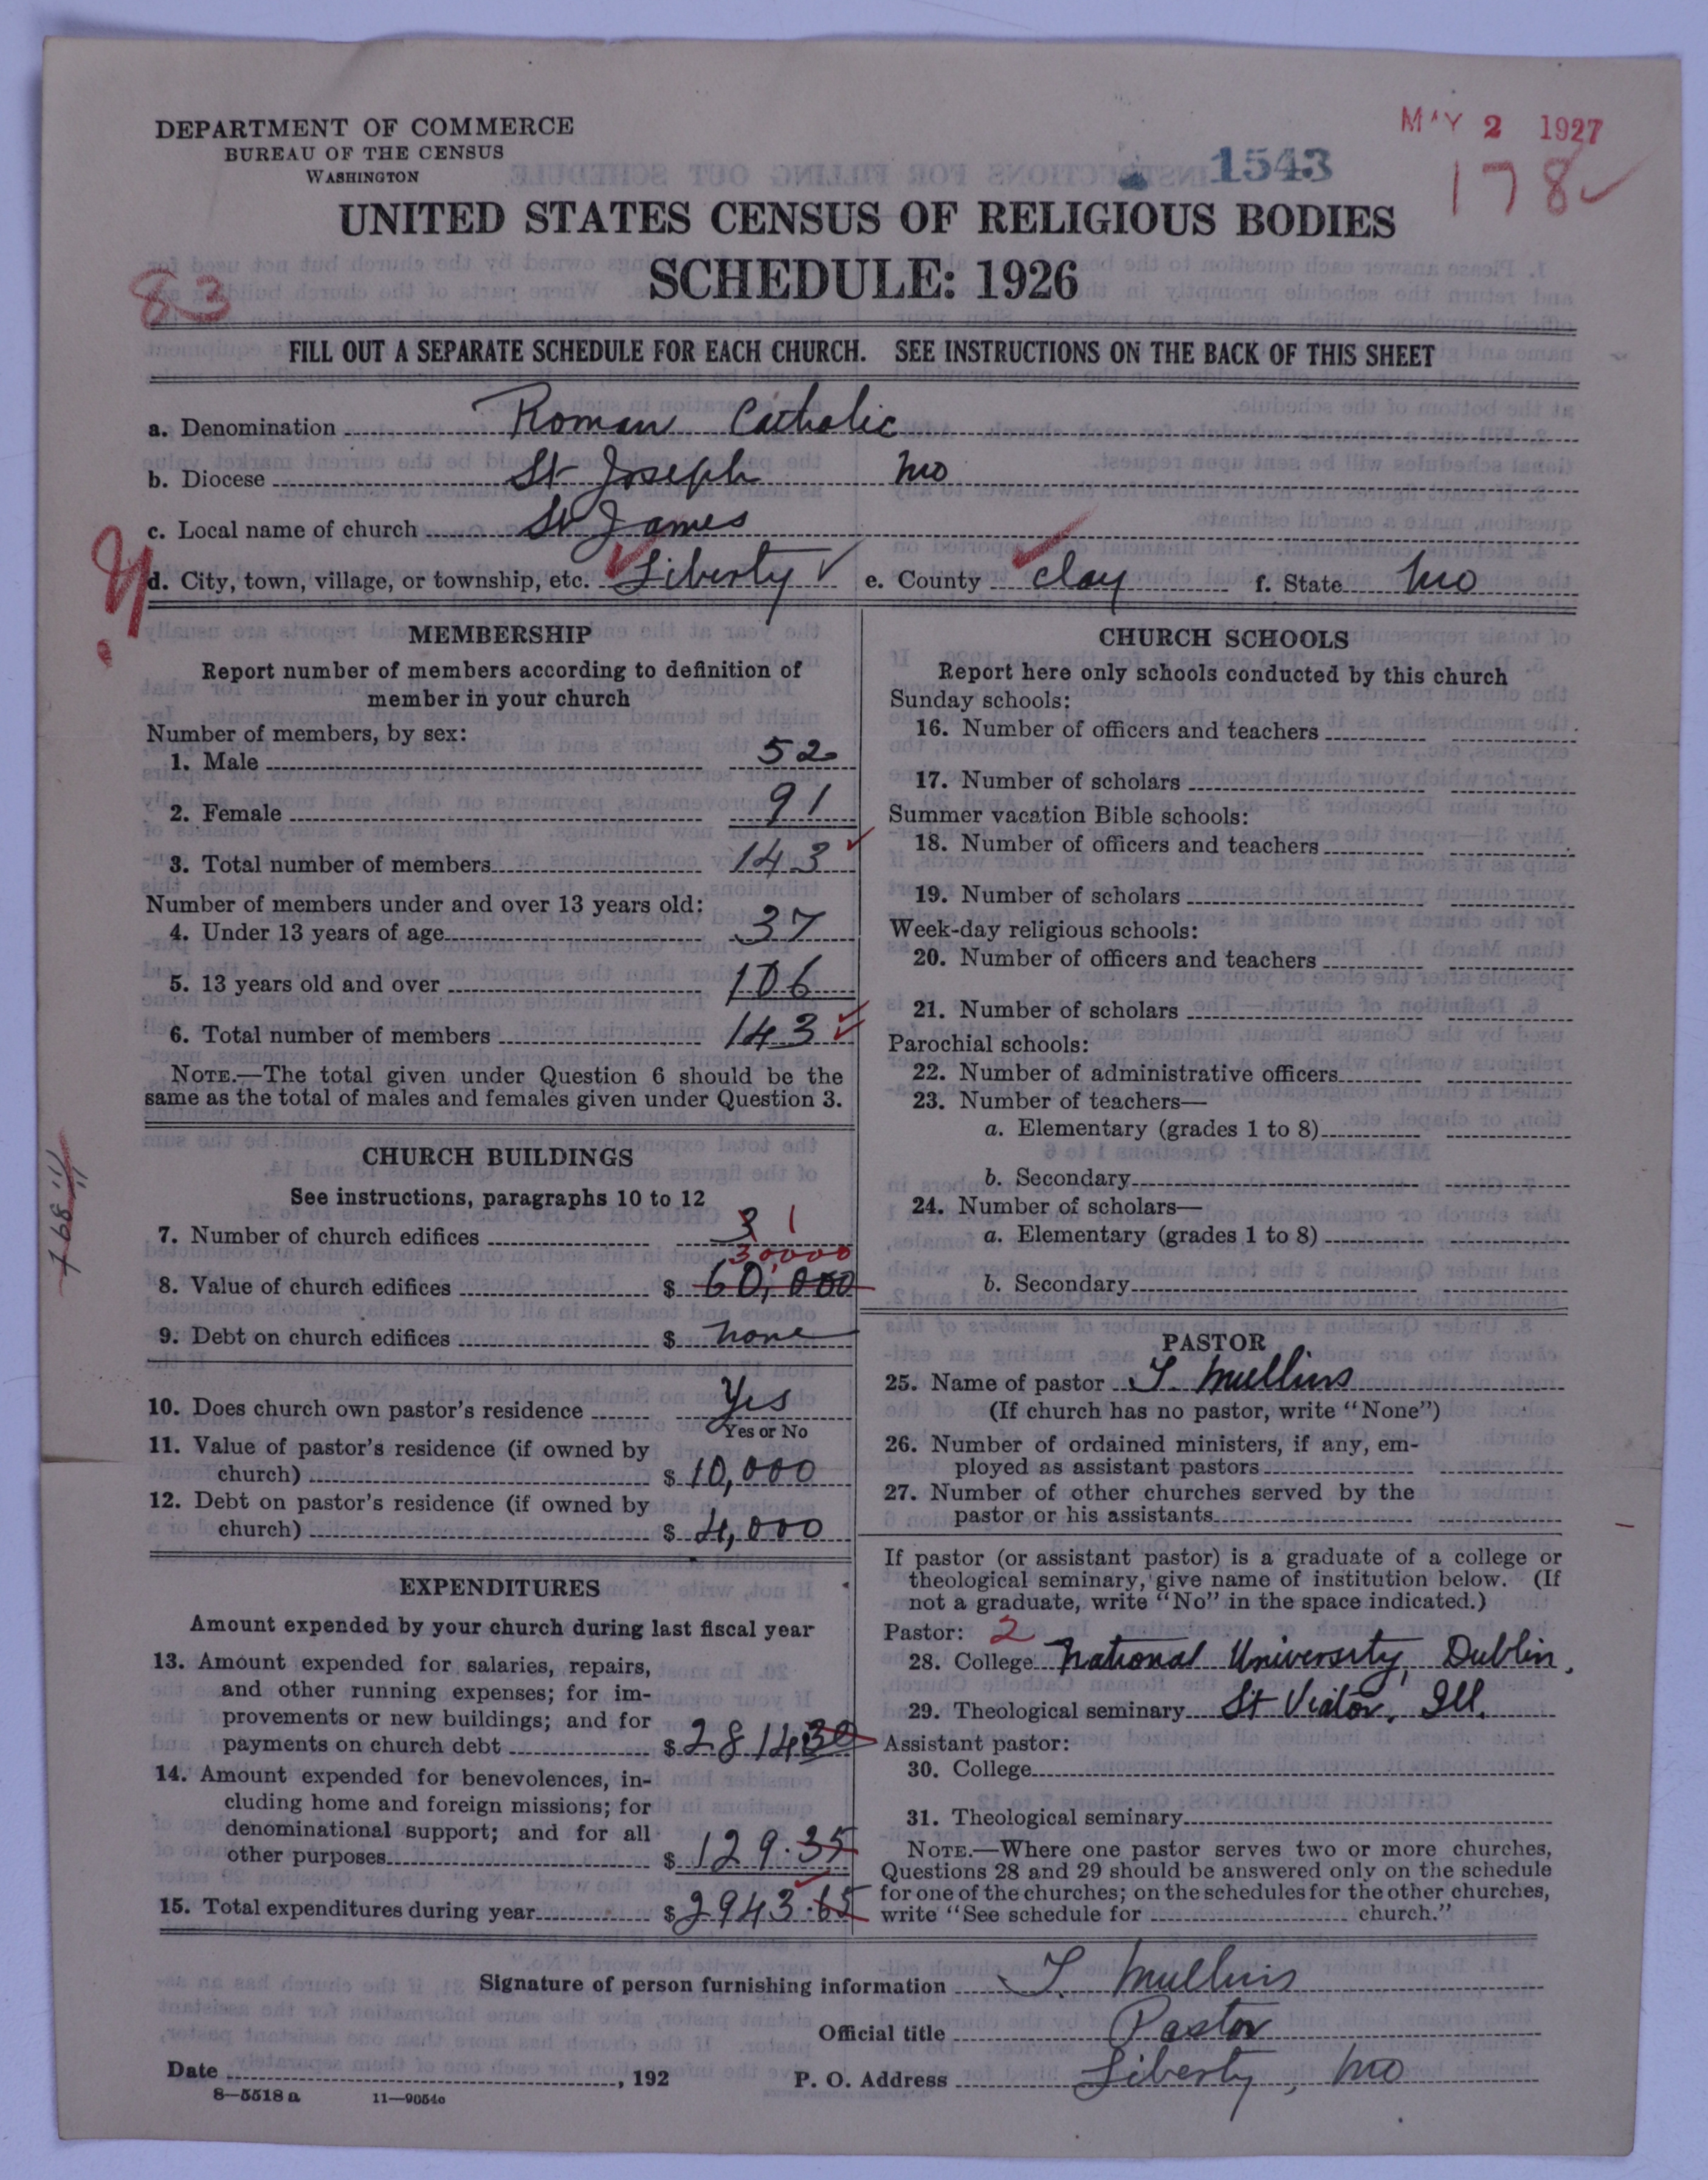 DEPARTMENT OF COMMERCE
BUREAU OF THE CENSUS
WASHINGTON
MAY 2 1927
1543
178
UNITED STATES CENSUS OF RELIGIOUS BODIES
SCHEDULE: 1926
83
FILL OUT A SEPARATE SCHEDULE FOR EACH CHURCH. SEE INSTRUCTIONS ON THE BACK OF THIS SHEET
a. Denomination Roman Catholic
b. Diocese St Joseph Mo
c. Local name of church St James
d. City, town, village, or township, etc. Liberty e. County Clay f. State Mo
MEMBERSHIP
Report number of members according to definition of
member in your church
Number of members, by sex:
1. Male 52
2. Female 91
3. Total number of members 143
Number of members under and over 13 years old:
4. Under 13 years of age 37
5. 13 years old and over 106
6. Total number of members 143
NOTE.—The total given under Question 6 should be the
same as the total of males and females given under Question 3.
CHURCH BUILDINGS
See instructions, paragraphs 10 to 12
7. Number of church edifices 3 1
30,000
8. Value of church edifices $ 60,000
9. Debt on church edifices $ none
10. Does church own pastor's residence Yes
Yes or No
11. Value of pastor's residence (if owned by
church) $ 10,000
12. Debt on pastor's residence (if owned by
church) $ 4,000
EXPENDITURES
Amount expended by your church during last fiscal year
13. Amount expended for salaries, repairs,
and other running expenses; for im-
provements or new buildings; and for
payments on church debt $ 2814 30
14. Amount expended for benevolences, in-
cluding home and foreign missions; for
denominational support; and for all
other purposes $ 129.35
15. Total expenditures during year $ 2943.65
CHURCH SCHOOLS
Report here only schools conducted by this church
Sunday schools:
16. Number of officers and teachers
17. Number of scholars
Summer vacation Bible schools:
18. Number of officers and teachers
19. Number of scholars
Week-day religious schools:
20. Number of officers and teachers
21. Number of scholars
Parochial schools:
22. Number of administrative officers
23. Number of teachers—
a. Elementary (grades 1 to 8)
b. Secondary
24. Number of scholars—
a. Elementary (grades 1 to 8)
b. Secondary
PASTOR
25. Name of pastor T. Mullins
(If church has no pastor, write "None")
26. Number of ordained ministers, if any, em-
ployed as assistant pastors
27. Number of other churches served by the
pastor or his assistants
If pastor (or assistant pastor) is a graduate of a college or
theological seminary, give name of institution below. (If
not a graduate, write "No" in the space indicated.)
Pastor: 2
28. College National University, Dublin.
29. Theological seminary St Viator, Ill.
Assistant pastor:
30. College
31. Theological seminary
NOTE.—Where one pastor serves two or more churches,
Questions 28 and 29 should be answered only on the schedule
for one of the churches; on the schedules for the other churches,
write "See schedule for church."
Signature of person furnishing information T. Mullins
Official title Pastor
Date , 192 P. O. Address Liberty, Mo
8—5518 a 11—9054o